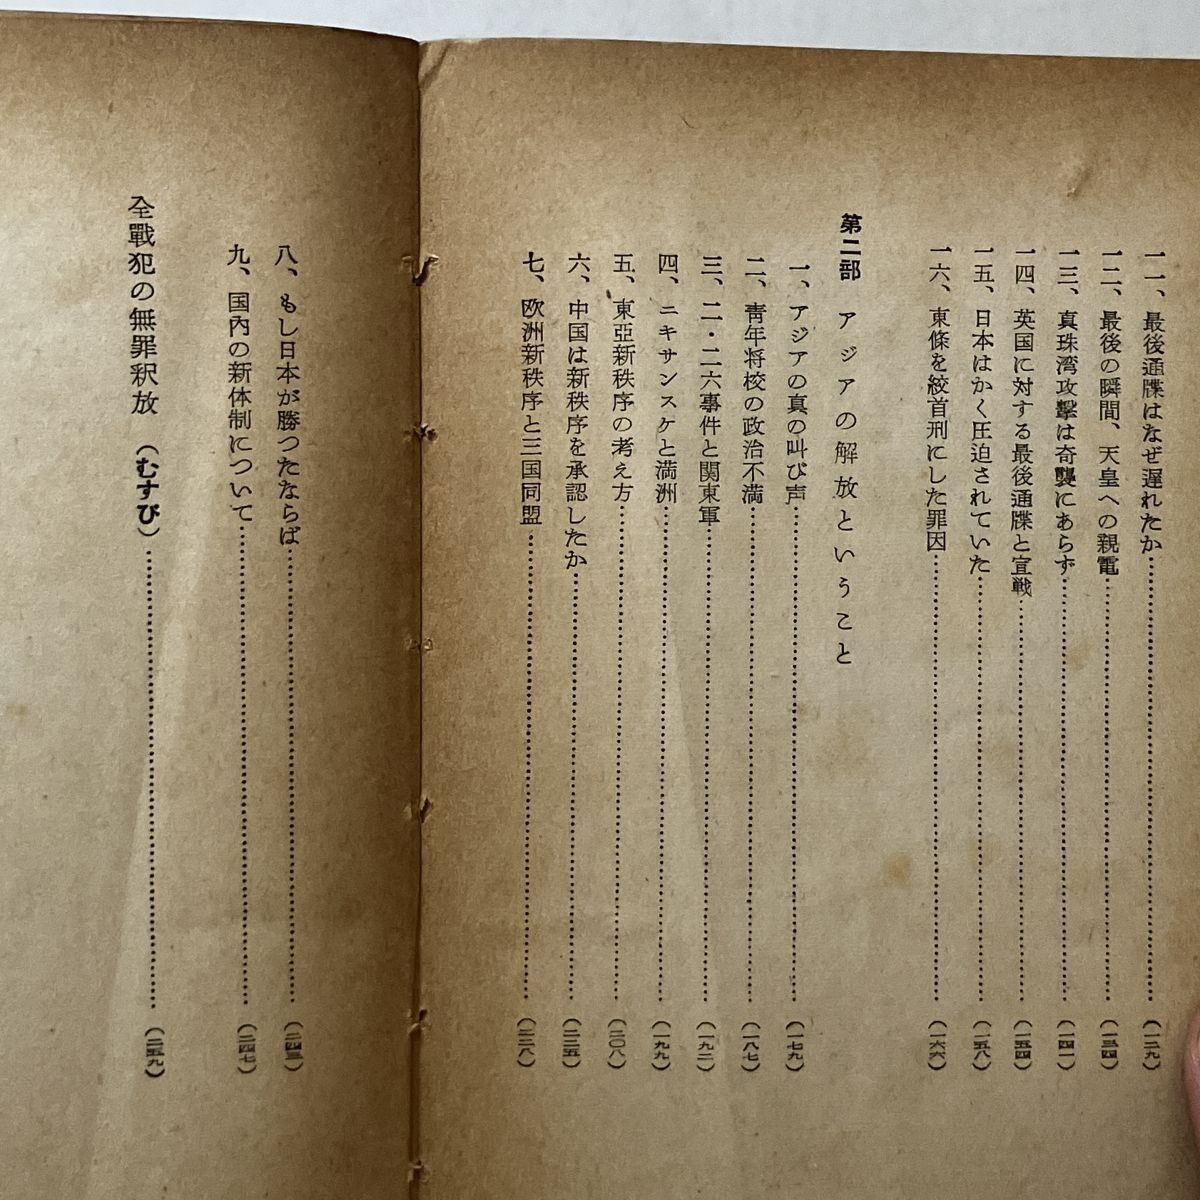 一一、最後通牒はなぜ遅れたか……(一二九)
一二、最後の瞬間、天皇への親電……(一三四)
一三、真珠湾攻擊は奇襲にあらず……(一四一)
一四、英国に対する最後通牒と宣戦……(一五四)
一五、日本はかく圧迫されていた……(一五八)
一六、東條を絞首刑にした罪因……(一六六)
第二部　アジアの解放ということ
一、アジアの真の叫び声……(一七九)
二、靑年将校の政治不満……(一八七)
三、二・二六事件と関東軍……(一九二)
四、ニキサンスケと満洲……(一九九)
五、東亞新秩序の考え方……(二〇八)
六、中国は新秩序を承認したか……(二二五)
七、欧洲新秩序と三国同盟……(二二八)
八、もし日本が勝つたならば……(二四三)
九、国內の新体制について……(二四七)
全戰犯の無罪釈放（むすび）……(二五九)